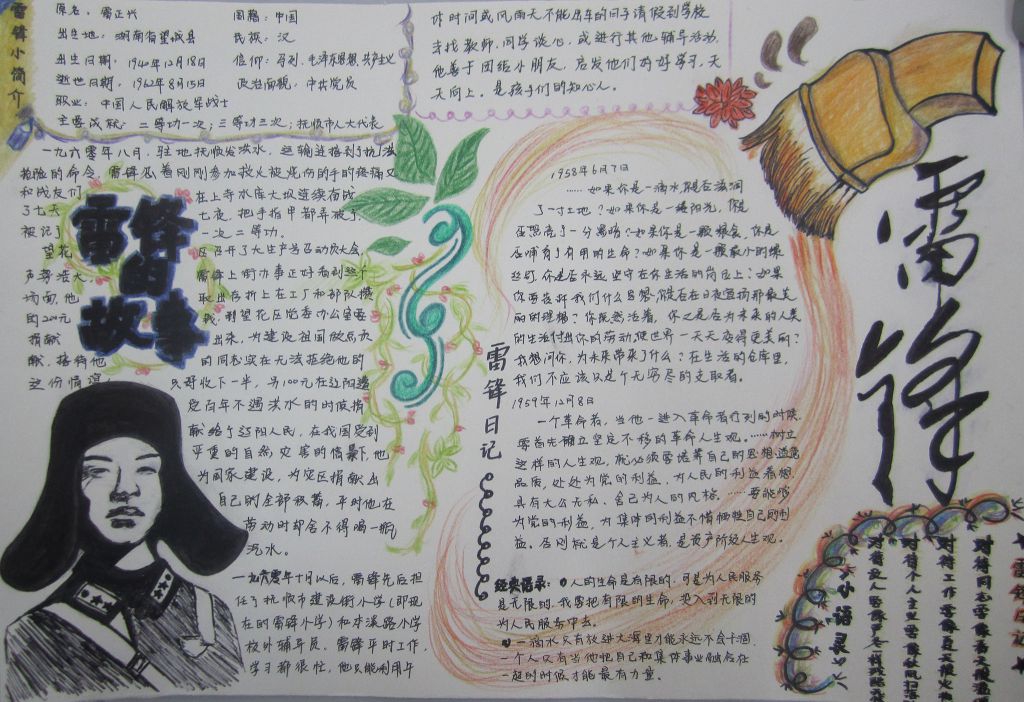 雷锋小简介
原名：雷正兴
国籍：中国
出生地：湖南省望城县
民族：汉
出生日期：1940年12月18日
信仰：马列、毛泽东思想、共产主义
逝世日期：1962年8月15日
政治面貌：中共党员
职业：中国人民解放军战士
主要成就：二等功一次；三等功三次；抚顺市人大代表
一九六零年八月，驻地抚顺发洪水，运输连接到了抗洪
抢险的命令，雷锋忍着刚刚参加救火被烧伤的手的疼痛又
和战友们
在上寺水库大坝连续奋战
了七天
七夜，把手指甲都弄破了
被记了
一次二等功。
望花
区召开了大生产号召动员大会
声势浩大，
雷锋上街办事正好看到这个
场面，他
取出存折上在工厂和部队攒
的200元
钱，到望花区党委办公室要
捐献
出来，为建设祖国做点贡
献，接待他
的同志实在无法拒绝他的
这份情谊，
只好收下一半，另100元在辽阳遭
受百年不遇洪水的时候捐
献给了辽阳人民，在我国受到
严重的自然灾害的情景下，他
为国家建设，为灾区捐献出
自己的全部积蓄，平时他在
劳动时却舍不得喝一瓶
汽水。
雷锋的故事
一九六零年十月以后，雷锋先后担
任了抚顺市建设街小学（即现
在的雷锋小学）和本溪路小学
校外辅导员。雷锋平时工作，
学习都很忙，他只能利用午
休时间或风雨天不能出车的日子请假到学校
来找教师、同学谈心，或进行其他辅导活动。
他善于团结小朋友，启发他们好好学习，天
天向上。是孩子们的知心人。
雷锋日记
1958年6月7日
……如果你是一滴水，你是否滋润
了一寸土地？如果你是一缕阳光，你是
否照亮了一分黑暗？如果你是一颗粮食，你是
否哺育了有用的生命？如果你是一颗最小的螺
丝钉，你是否永远坚守在你生活的岗位上？如果
你要告诉我们什么思想，你是否在日夜宣扬那最美
丽的理想？你既然活着，你又是否为未来的人类
的生活付出你的劳动，使世界一天天变得更美丽？
我想问你，为未来带来了什么？在生活的仓库里，
我们不应该只是个无穷尽的支取者。
1959年12月8日
一个革命者，当他一进入革命者行列的时候，
要首先确立坚定不移的革命人生观。……树立
这样的人生观，就必须要培养自己的思想道德
品质，处处为党的利益、为人民的利益着想，
具有大公无私、舍己为人的风格。……要能够
为党的利益，为集体的利益不惜牺牲自己的利
益。否则就是个人主义者，是资产阶级人生观。
经典语录：人的生命是有限的，可是为人民服务
是无限的，我要把有限的生命，投入到无限的
为人民服务中去。
一滴水只有放进大海里才能永远不会干涸，
一个人只有当他把自己和集体事业融合在
一起的时候才能最有力量。
雷锋
对待同志要像春天般温
对待工作要像夏天般火
对待个人主义要像秋风扫落
小语录